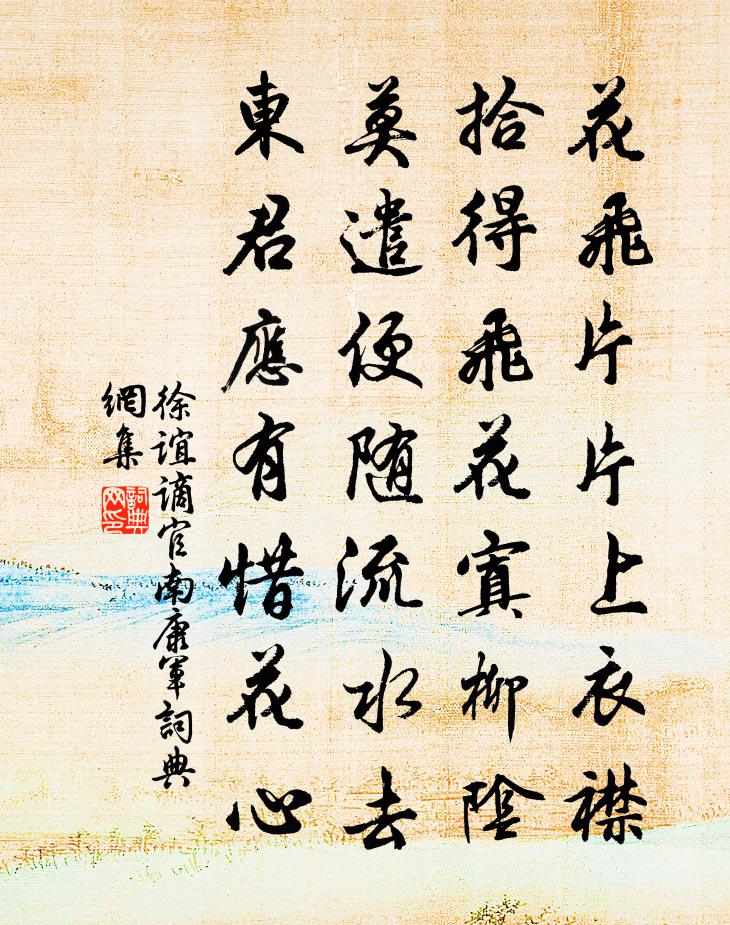 花飛片片上衣襟
拾得飛花寘柳陰
莫遣便隨流水去
東君應有惜花心
徐誼謫官南康軍詞典
網集
詞典
网印